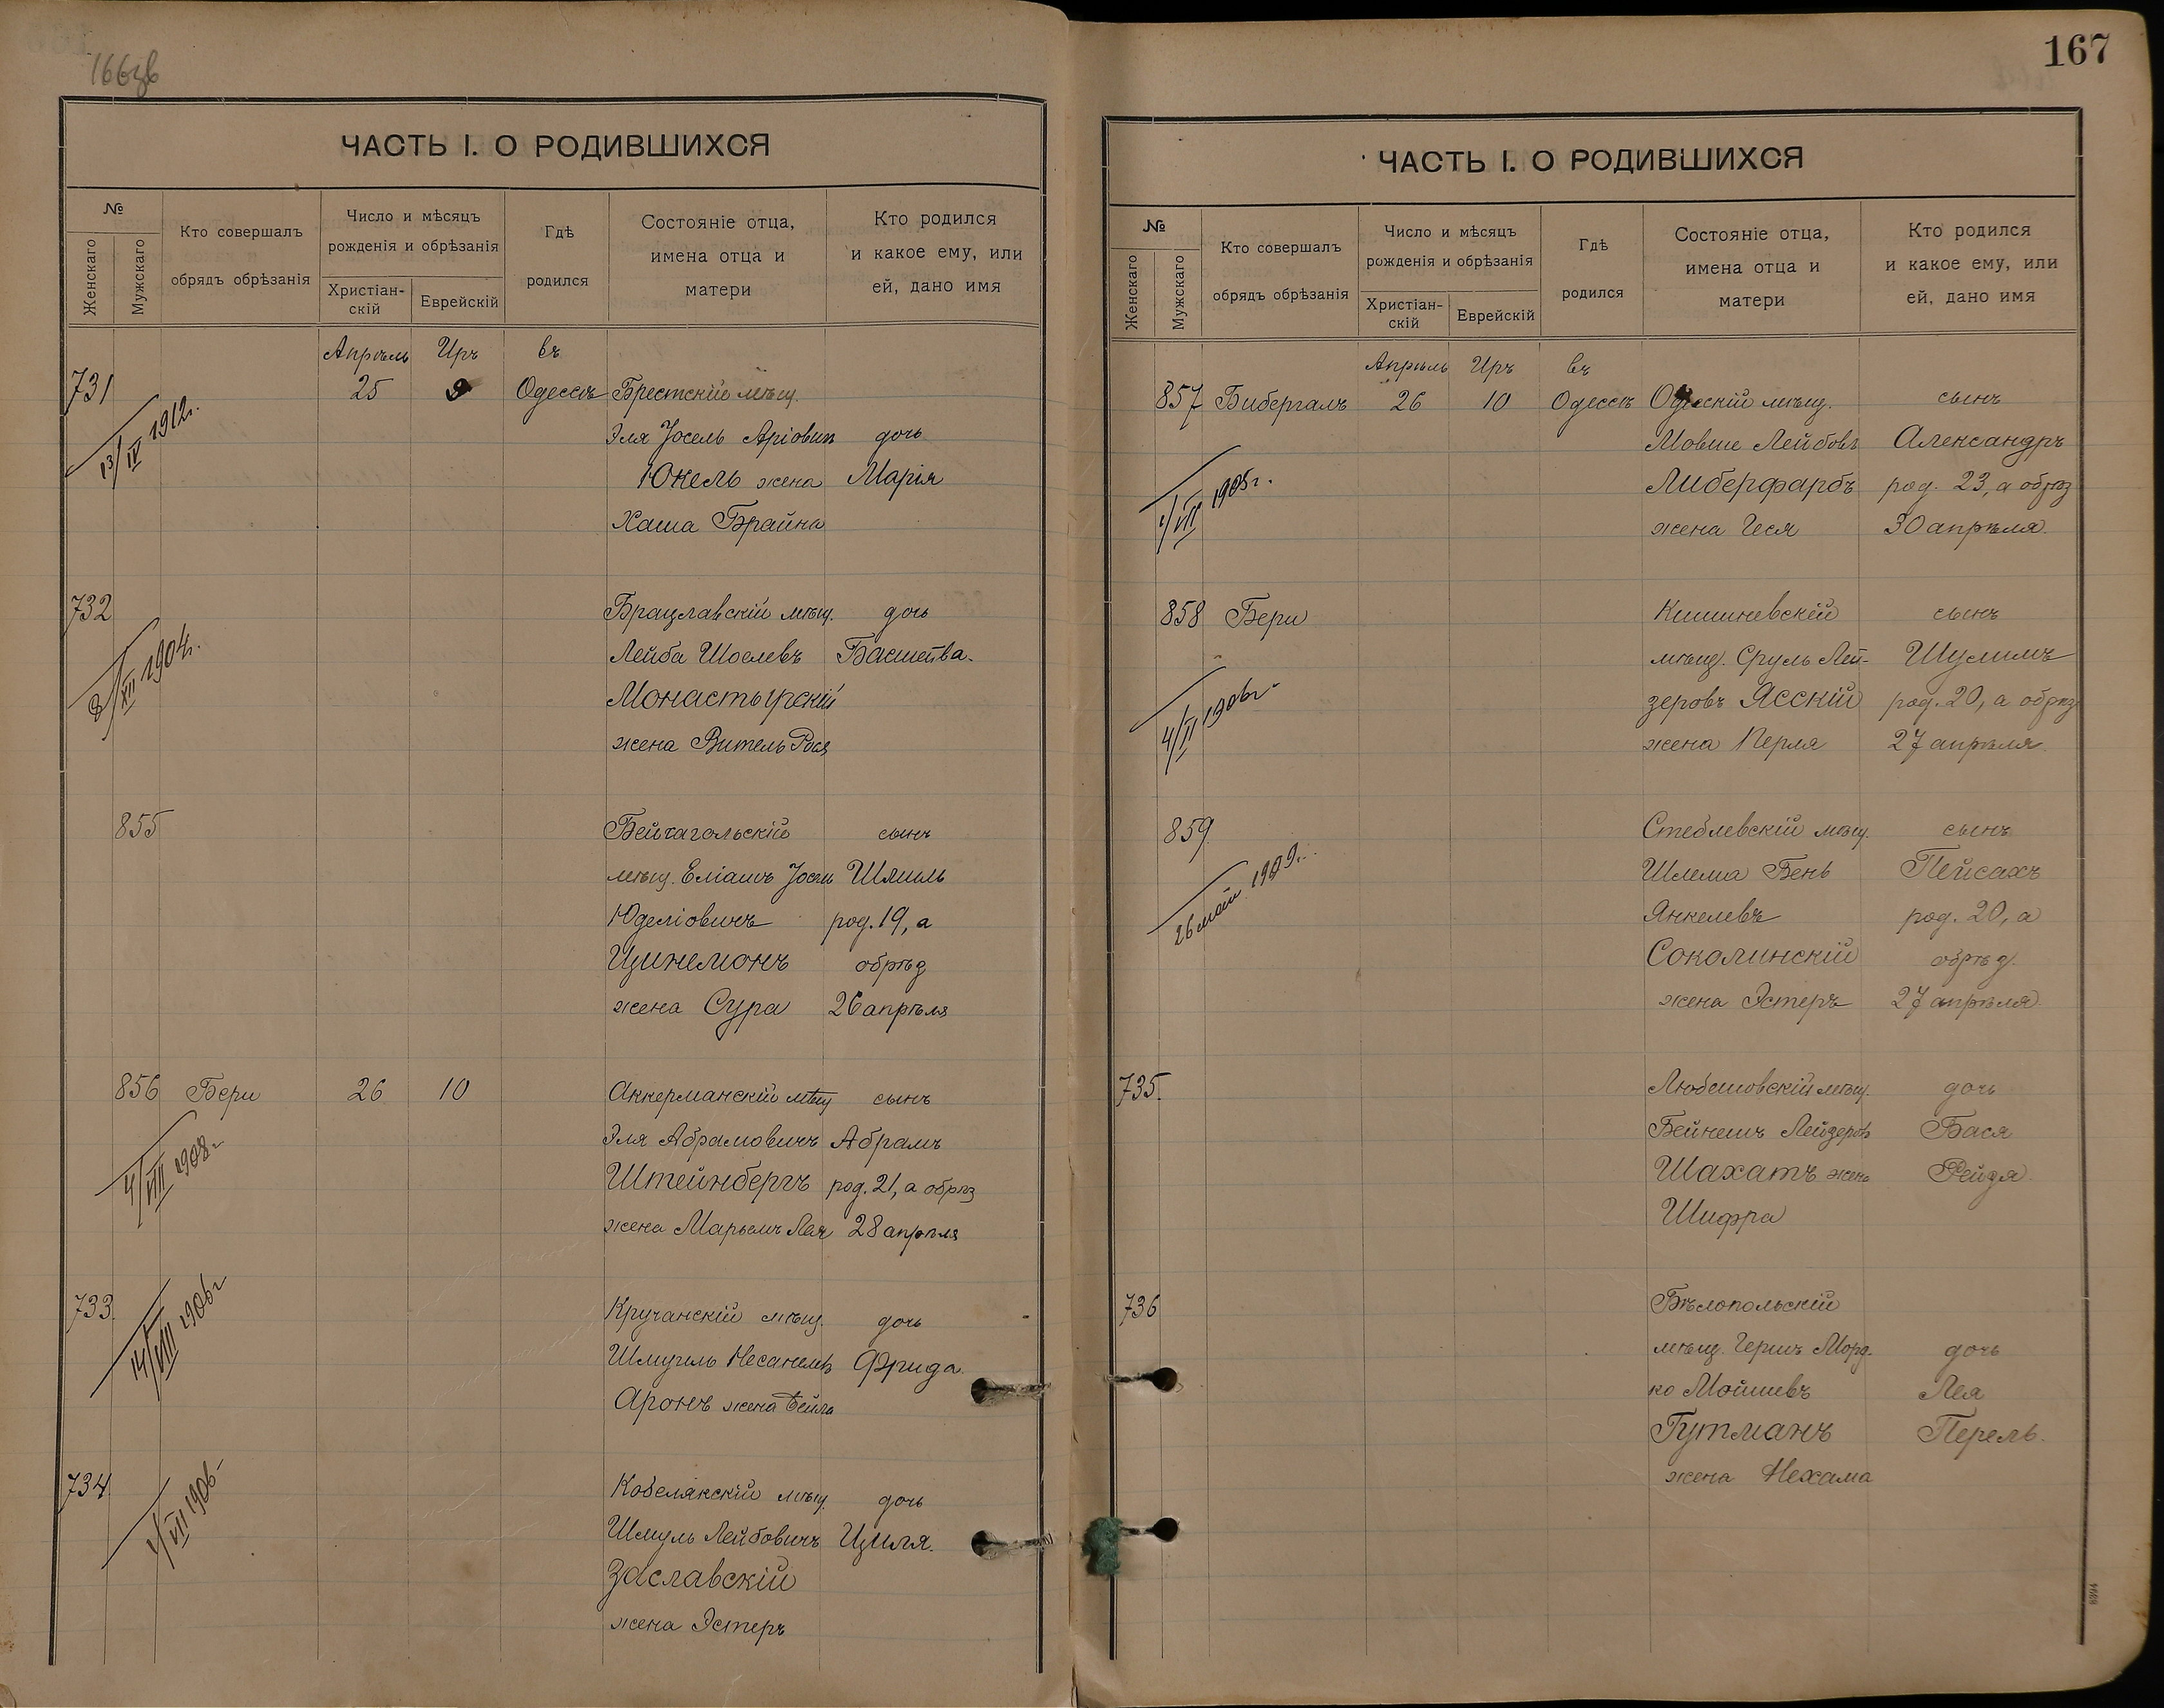 166 об
ЧАСТЬ I. О РОДИВШИХСЯ
№
Женскаго
Мужскаго
Кто совершалъ
обрядъ обрѣзанія
Число и мѣсяцъ
рожденія и обрѣзанія
Христіан-
скій
Еврейскій
Гдѣ
родился
Состояніе отца,
имена отца и
матери
Кто родился
и какое ему, или
ей, дано имя
Апрѣль Иръ въ
731 25 9 Одессѣ Брестскій мѣщ.
13/IV 1912г.
Эля Іосель Аріовичъ дочь
Юкель жена Марія
Хаша Брайна
732 Брацлавскій мѣщ. дочь
8/XII 1904г.
Лейба Шоелевъ Басшейва.
Монастырскій
жена Витель Рося
855 сынъ
мѣщ. Шмиль
Юделіовичъ род. 19, а
Цинемонъ обрѣз
жена Сура 26 апрѣля
856 Бери 26 10 Аккерманскій мѣщ сынъ
4/VIII 1908г.
Эля Абрамовичъ Абрамъ
Штейнбергъ род. 21, а обрѣз
жена Марьемъ Лея 28 апрѣля
733 Кручанскій мѣщ. дочь
14/VIII 1906г
Шмуель Фрида
Аронъ жена Бейла
734 Кобелякскій мѣщ. дочь
1/VII 1906
Шмуль Лейбовичъ Циля.
Заславскій
жена Эстеръ
167
ЧАСТЬ I. О РОДИВШИХСЯ
№
Женскаго
Мужскаго
Кто совершалъ
обрядъ обрѣзанія
Число и мѣсяцъ
рожденія и обрѣзанія
Христіан-
скій
Еврейскій
Гдѣ
родился
Состояніе отца,
имена отца и
матери
Кто родился
и какое ему, или
ей, дано имя
Апрѣль Иръ въ
857 Бибергалъ 26 10 Одессѣ Одесскій мѣщ. сынъ
1/VII 1905г.
Мовше Лейбовъ Александръ
Либерфарбъ род. 23, а обрѣз
жена Геся 30 апрѣля.
858 Бери Кишиневскій сынъ
4/II 1906г
мѣщ. Сруль Лей- Шулимъ
зеровъ Ясскій род. 20, а обрѣз
жена Перля 27 апрѣля.
859 Стеблевскій мѣщ. сынъ
26 май 1909г.
Шлема Бенъ Пейсахъ
Янкелевъ род. 20, а
Соколинскій обрѣз.
жена Эстеръ 27 апрѣля
735. Любешовскій мѣщ. дочь
Бейнешъ Лейзеровъ Бася
Шахатъ жена Рейзя.
Шифра
736 Бѣлопольскій
мѣщ. Гершъ Морд- дочь
ко Мошиевъ Лея
Гутманъ Перель.
жена Нехама
8994